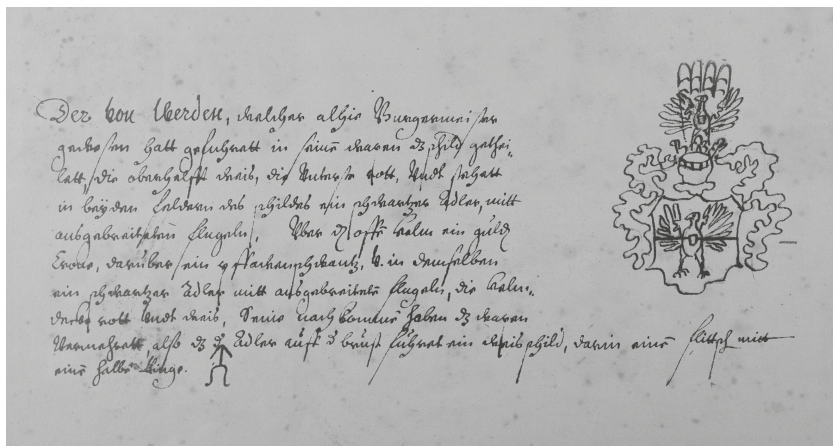 Der von Werden, welcher alhie Burgermeister
gewesen hatt gefuhrett in seine waren dz schild gethei-
lett, die oberhelfft weis, die Unterst rott, Undt stehett
in beyden feldern des schildes ein schwartzer Adler, mitt
ausgebreiteten flugeln, Uber offe helm ein guld
Crone, darüber ein pffauenschwantz, in demselben
ein schwartzer Adler mitt ausgebreitete flugeln, die helm-
decke rott Undt weis, Seine nachkomme haben dz waren
Vermehrett, also dz Adler auff brust führet ein weis schild, darin eine flittsch mitt
eine halbe